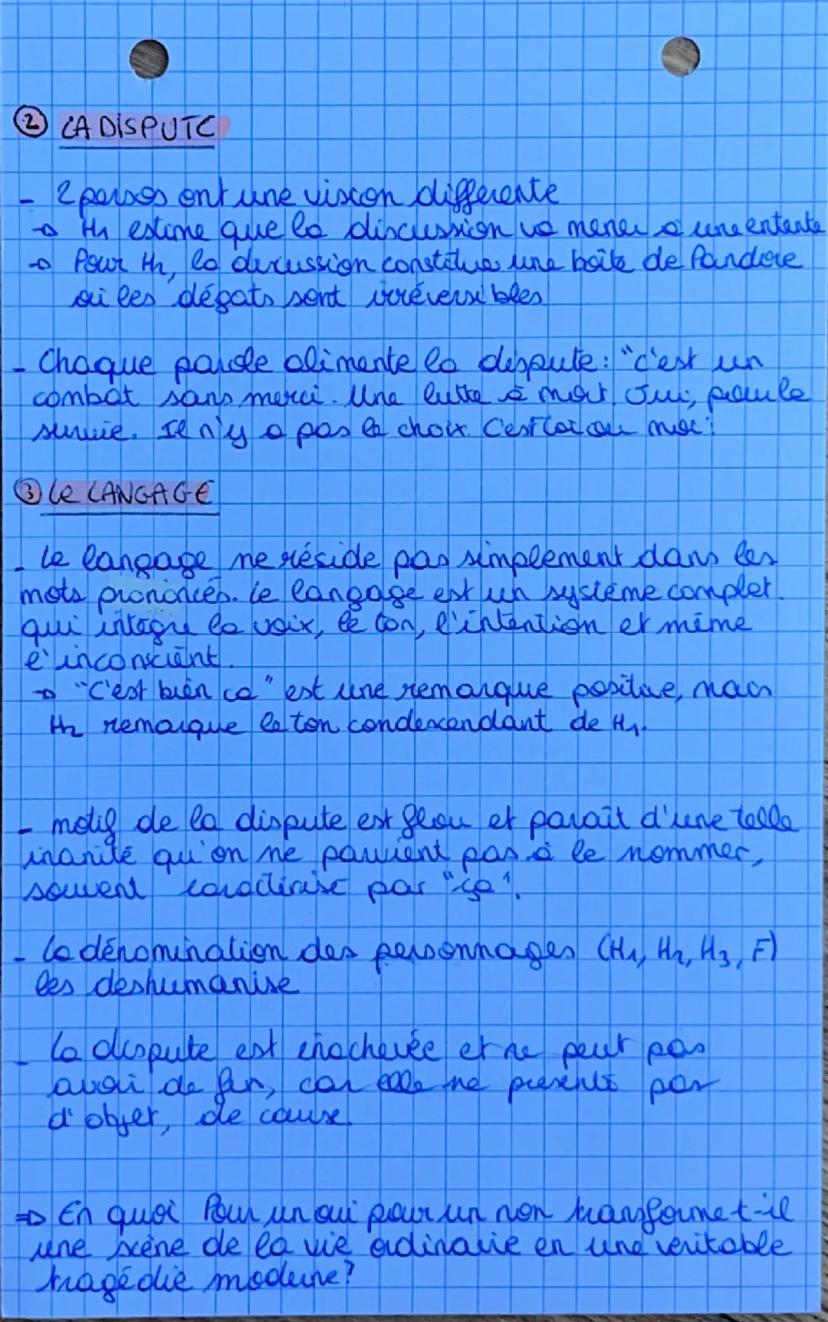 ② LA DISPUTE
- 2 persos ont une vision differente
→ H1 estime que la discussion va mener a une entente
→ Pour H2, la discussion constitue une boîte de Pandore
où les dégats sont irréversibles
- Chaque parole alimente la dispute : "c'est un
combat sans merci. Une lutte à mort Oui, pour la
survie. Il n'y a pas le choix C'est toi ou moi"
③ Le LANGAGE
- Le langage ne réside pas simplement dans les
mots prononcés. Le langage est un système complet
qui intègre la voix, le ton, l'intention et même
l'inconscient.
→ "C'est bien ça" est une remarque positive, mais
H2 remarque le ton condescendant de H1.
- motif de la dispute est flou et paraît d'une telle
inanité qu'on ne parvient pas à le nommer,
souvent caractérisé par "ça".
- La dénomination des personnages (H1, H2, H3, F)
les deshumanise
- La dispute est inachevée et ne peut pas
avoir de fin, car elle ne présente pas
d'objet, de cause.
⇒ En quoi Pour un oui pour un non transforme t-il
une scène de la vie ordinaire en une veritable
tragédie moderne?